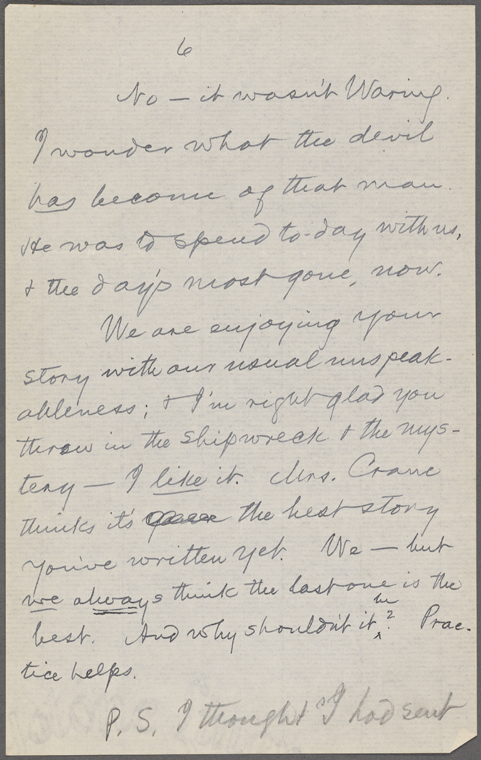 6
No — it wasn't Waring.
I wonder what the devil
has become of that man.
He was to spend to-day with us,
& the day's most gone, now.
We are enjoying your
story with our usual unspeak-
ableness; & I'm right glad you
threw in the shipwreck & the mys-
tery — I like it. Mrs. Crane
thinks it's the best story
you've written yet. We — but
we always think the last one is the
best. And why shouldn't it be? Prac-
tice helps.
P. S. I thought I had sent